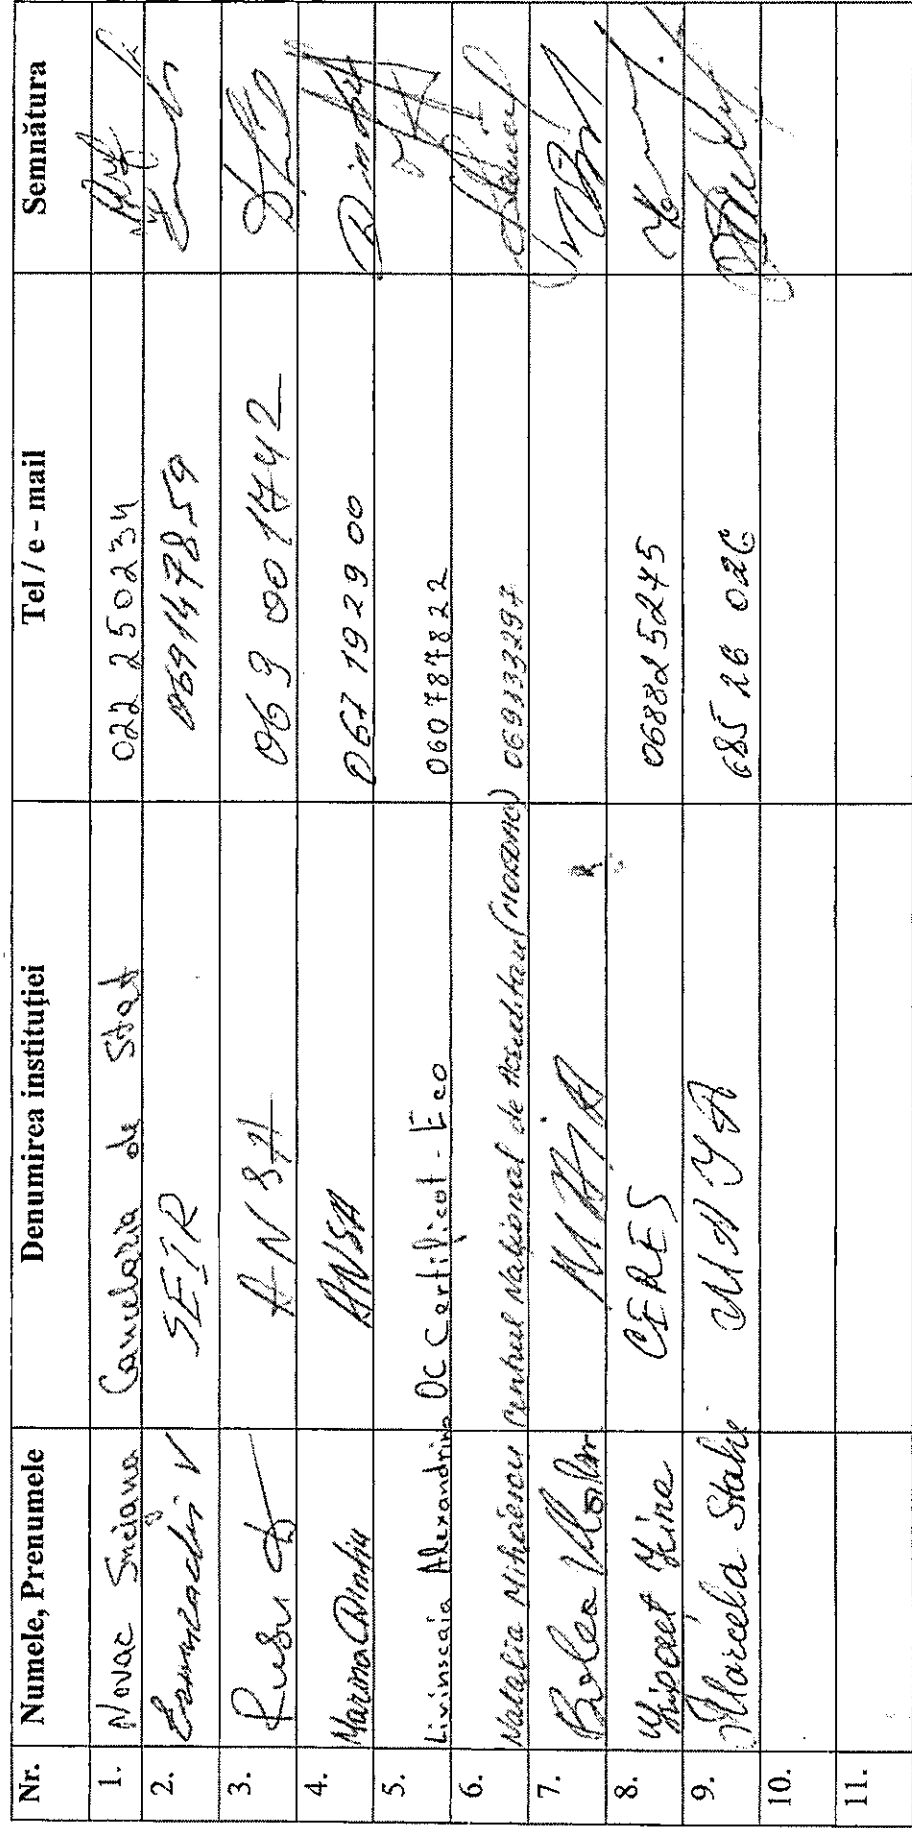 Nr. Numele, Prenumele Denumirea instituției Tel / e - mail Semnătura
1. Novac Snejana Cancelaria de Stat 022 250234
2. V SEIR 069147859
3. Rusu ANSA 069 001742
4. Marina Dintiu ANSA 067 19 29 00
5. Livinscaia Alexandrina OC Certificat - Eco 060787822
6. Natalia Mihăescu Centrul Național de Acreditare (MOLDAC) 069333297
7. MAIA
8. CERES 068825245
9. Marcela Stahi MAIA 685 26 026
10.
11.